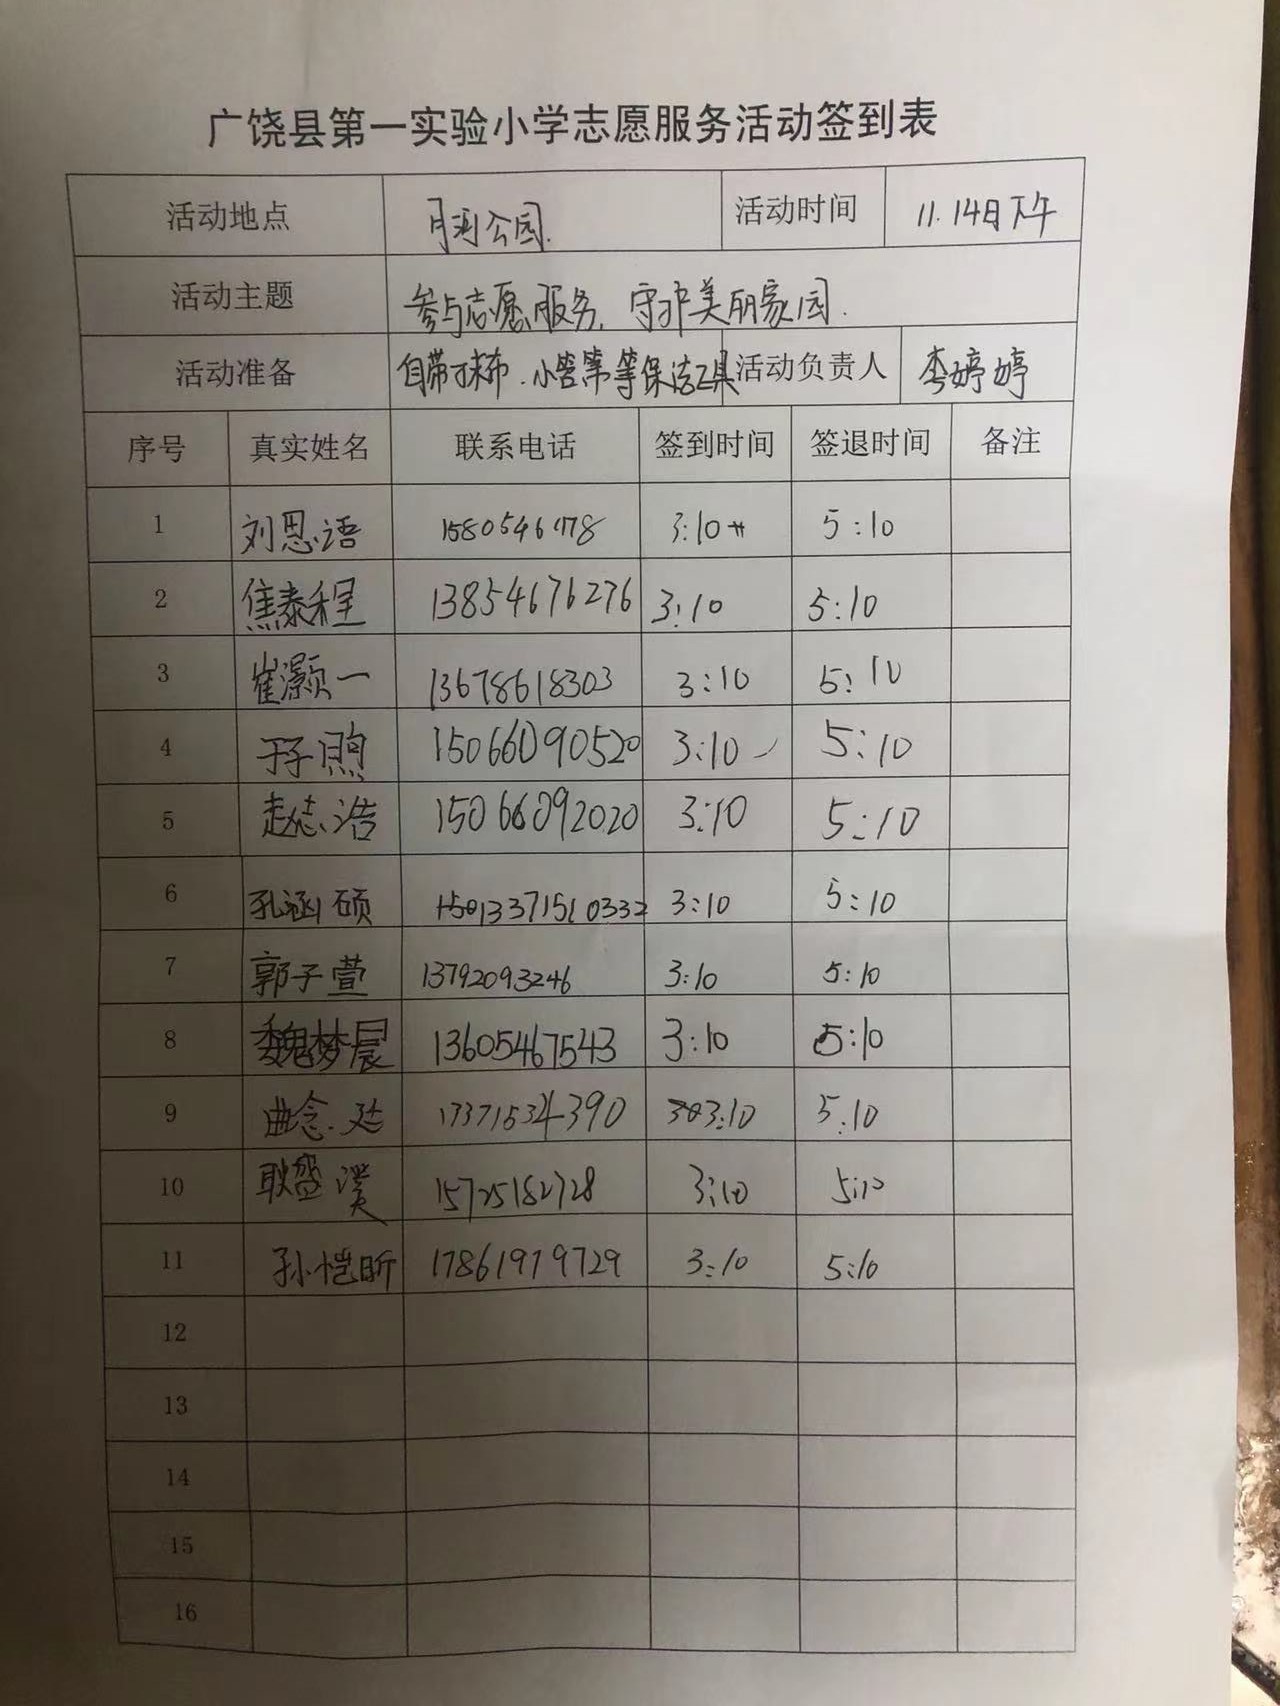 广饶县第一实验小学志愿服务活动签到表
活动地点 月河公园. 活动时间 11.14日下午
活动主题 参与志愿服务, 守护美丽家园.
活动准备 自带抹布.小笤帚等保洁工具 活动负责人 李婷婷
序号 真实姓名 联系电话 签到时间 签退时间 备注
1 刘思语 3:10 5:10
2 焦泰程 13854676276 3:10 5:10
3 崔灏一 13678618303 3:10 5:10
4 于子煦 15066090520 3:10 5:10
5 赵志浩 15066092020 3:10 5:10
6 孔涵硕 13371510332 3:10 5:10
7 郭子萱 13792093246 3:10 5:10
8 魏梦晨 13605467543 3:10 5:10
9 曲念 17371534390 3:10 5:10
10 耿盛 15725182728 3:10 5:10
11 孙恺昕 17861979729 3:10 5:10
12
13
14
15
16